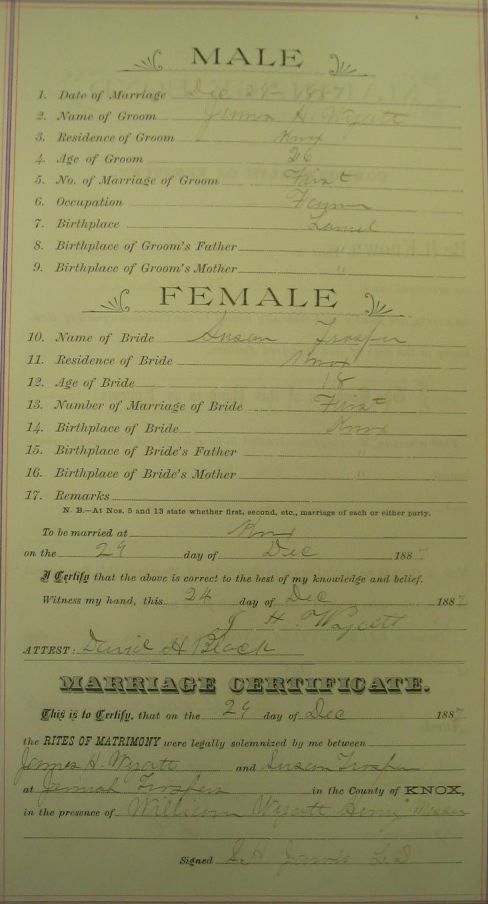 MALE
1. Date of Marriage Dec 29 1887
2. Name of Groom James H. Wyatt
3. Residence of Groom Knox
4. Age of Groom 26
5. No. of Marriage of Groom First
6. Occupation Farmer
7. Birthplace Laurel
8. Birthplace of Groom's Father "
9. Birthplace of Groom's Mother "
FEMALE
10. Name of Bride Susan Trosper
11. Residence of Bride Knox
12. Age of Bride 18
13. Number of Marriage of Bride First
14. Birthplace of Bride Knox
15. Birthplace of Bride's Father "
16. Birthplace of Bride's Mother "
17. Remarks
N. B.—At Nos. 5 and 13 state whether first, second, etc., marriage of each or either party.
To be married at Knox
on the 29 day of Dec 1887
I Certify that the above is correct to the best of my knowledge and belief.
Witness my hand, this 24 day of Dec 1887
J. H. Wyatt
ATTEST: David H Black
MARRIAGE CERTIFICATE.
This is to Certify, that on the 29 day of Dec 1887
the RITES OF MATRIMONY were legally solemnized by me between
James H. Wyatt and Susan Trosper
at Jemiah Trospers in the County of KNOX,
in the presence of William Wyatt Henry
Signed S. H. Jarvis